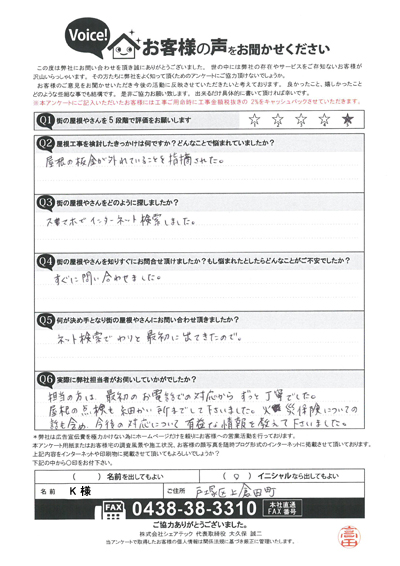 Voice!
お客様の声をお聞かせください
この度は弊社にお問い合わせを頂き誠にありがとうございます。世の中には弊社の存在やサービスをご存知ないお客様が
沢山いらっしゃいます。その方たちに弊社をよく知って頂くためのアンケートにご協力頂けないでしょうか。
お客様のご意見をお聞かせいただき今後の活動に反映させていただきたいと考えております。良かったこと、嬉しかったこと
どのような些細な事でも結構です。是非ご協力お願い致します。出来るだけ具体的に書いて頂ければ幸いです。
※本アンケートにご記入いただいたお客様には工事ご用命時に工事金額税抜きの 2%をキャッシュバックさせていただきます。
Q1 街の屋根やさんを5段階で評価をお願いします ☆ ☆ ☆ ☆ ★
Q2 屋根工事を検討したきっかけは何ですか?どんなことで悩まれていましたか?
屋根の板金が外れていることを指摘された。
Q3 街の屋根やさんをどのように探しましたか?
スマホでインターネット検索しました。
Q4 街の屋根やさんを知りすぐにお問合せ頂けましたか?もし悩まれたとしたらどんなことがご不安でしたか?
すぐに問い合わせました。
Q5 何が決め手となり街の屋根やさんにお問い合わせ頂きましたか?
ネット検索でわりと最初に出てきたので。
Q6 実際に弊社担当者がお伺いしていかがでしたか?
担当の方は、最初のお電話での対応からずっと丁寧でした。
屋根の点検も細かい所までして下さいました。火災保険についての
話も含め、今後の対応について有益な情報を教えて下さいました。
※弊社は広告宣伝費を極力かけない為にホームページだけを頼りにお客様への営業活動を行っております。
本アンケート用紙またはお客様宅の調査風景や施工状況、お客様の顔写真を随時ブログ形式のインターネットに掲載させて頂いております。
上記内容をインターネットや印刷物に掲載させて頂いてもよろしいでしょうか?
下記の中から○印をお付け下さい。
( )名前を出してもよい ( ○ )イニシャルなら出してもよい
名前 K 様 ご住所 戸塚区上倉田町
FAX 0438-38-3310 本社直通 FAX番号
ご協力ありがとうございました。
株式会社シェアテック 代表取締役 大久保 誠二
当アンケートで取得したお客様の個人情報は関係法規に基づき厳正に管理いたします。